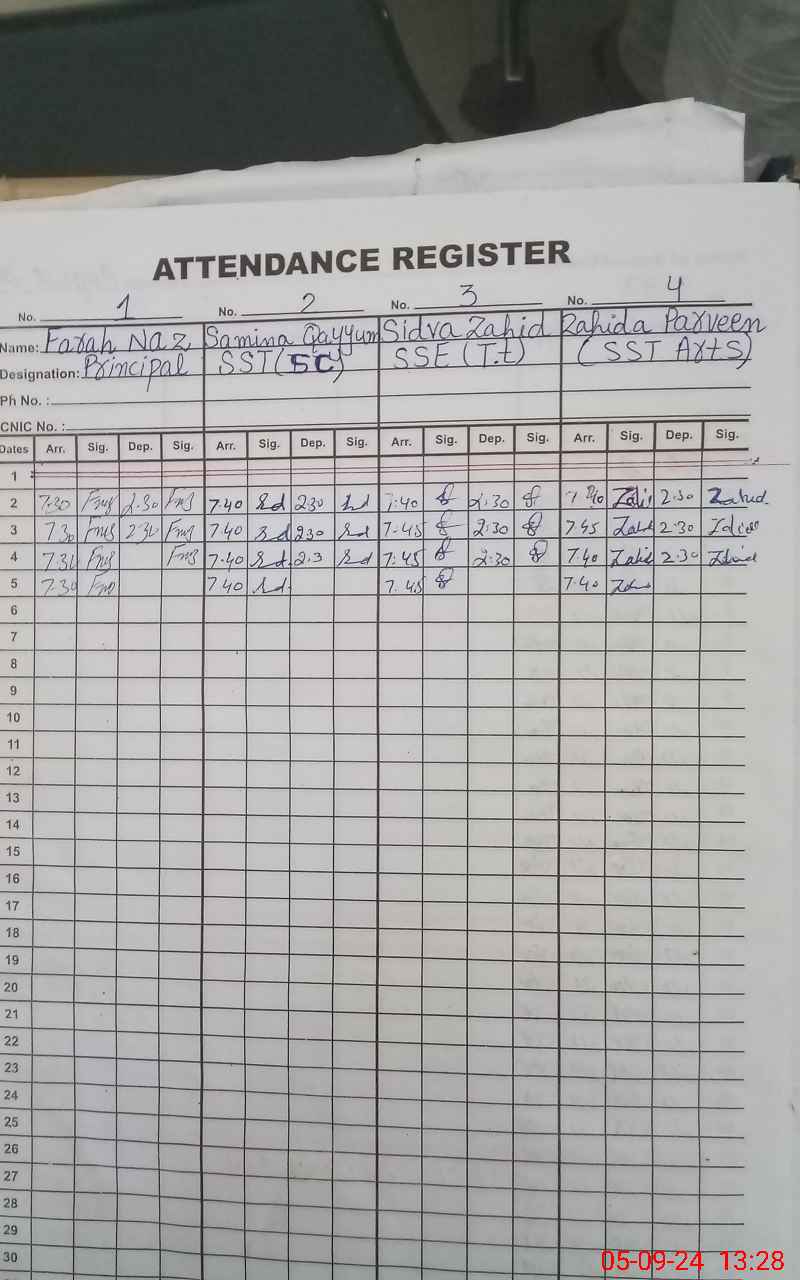 ATTENDANCE REGISTER
No. 1 No. 2 No. 3 No. 4
Name: Farah Naz Samina Qayyum Sidva Zahid Zahida Parveen
Designation: Principal SST (SC) SSE (T.t) (SST Arts)
Ph No. :
CNIC No. :
Dates Arr. Sig. Dep. Sig. Arr. Sig. Dep. Sig. Arr. Sig. Dep. Sig. Arr. Sig. Dep. Sig.
1
2 7.30 2.30 7.40 Sd 230 Sd 7:40 2:30 7.40 2.30 Zahid
3 7.30 2.30 7.40 Sd 230 Sd 7-45 2:30 7.45 2-30
4 7.30 7.40 Sd 2.3 Sd 7:45 2:30 7.40 2.30
5 7.30 7.40 Sd 7.45 7.40
6
7
8
9
10
11
12
13
14
15
16
17
18
19
20
21
22
23
24
25
26
27
28
29
30
05-09-24 13:28